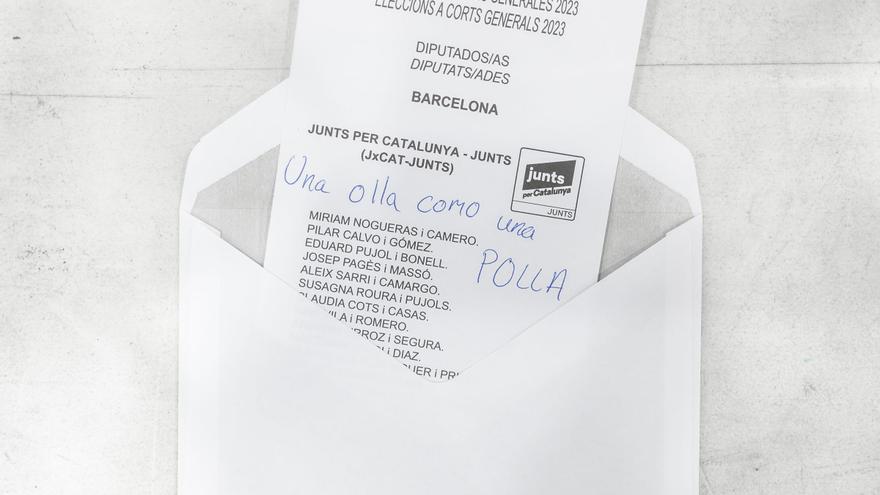 GENERALES 2023
ELECCIONS A CORTS GENERALS 2023
DIPUTADOS/AS
DIPUTATS/ADES
BARCELONA
JUNTS PER CATALUNYA - JUNTS
(JxCAT-JUNTS)
junts
per Catalunya
JUNTS
Una olla como una
POLLA
MIRIAM NOGUERAS i CAMERO.
PILAR CALVO i GÓMEZ.
EDUARD PUJOL i BONELL.
JOSEP PAGÈS i MASSÓ.
ALEIX SARRI i CAMARGO.
SUSAGNA ROURA i PUJOLS.
CLAUDIA COTS i CASAS.
VILA i ROMERO.
RROZ i SEGURA.
i DIAZ.
UER i PRI